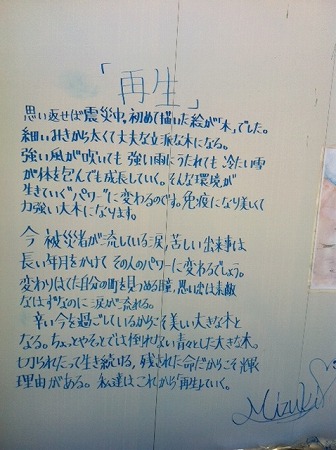 「再生」
思い返せば震災中、初めて描いた絵が「木」でした。
細いみきから太くて丈夫な立派な木になる。
強い風が吹いても 強い雨にうたれても 冷たい雪
が体を包んでも成長していく。そんな環境が
生きていく"パワー"に変わるのです。免疫になり美しくて
力強い大木になります。
今 被災者が流している涙、苦しい出来事は
長い年月をかけて その人のパワーに変わるでしょう。
変わりはてた自分の町を見つめる瞳。思い出は素敵
なはずなのに 涙が流れる。
辛い今を過ごしているからこそ美しい大きな木と
なる。ちょっとやそっとでは倒れない青々とした大きな木。
切られたって生き続ける、残された命だからこそ輝く
理由がある。私達はこれから「再生」していく。
Mizuki